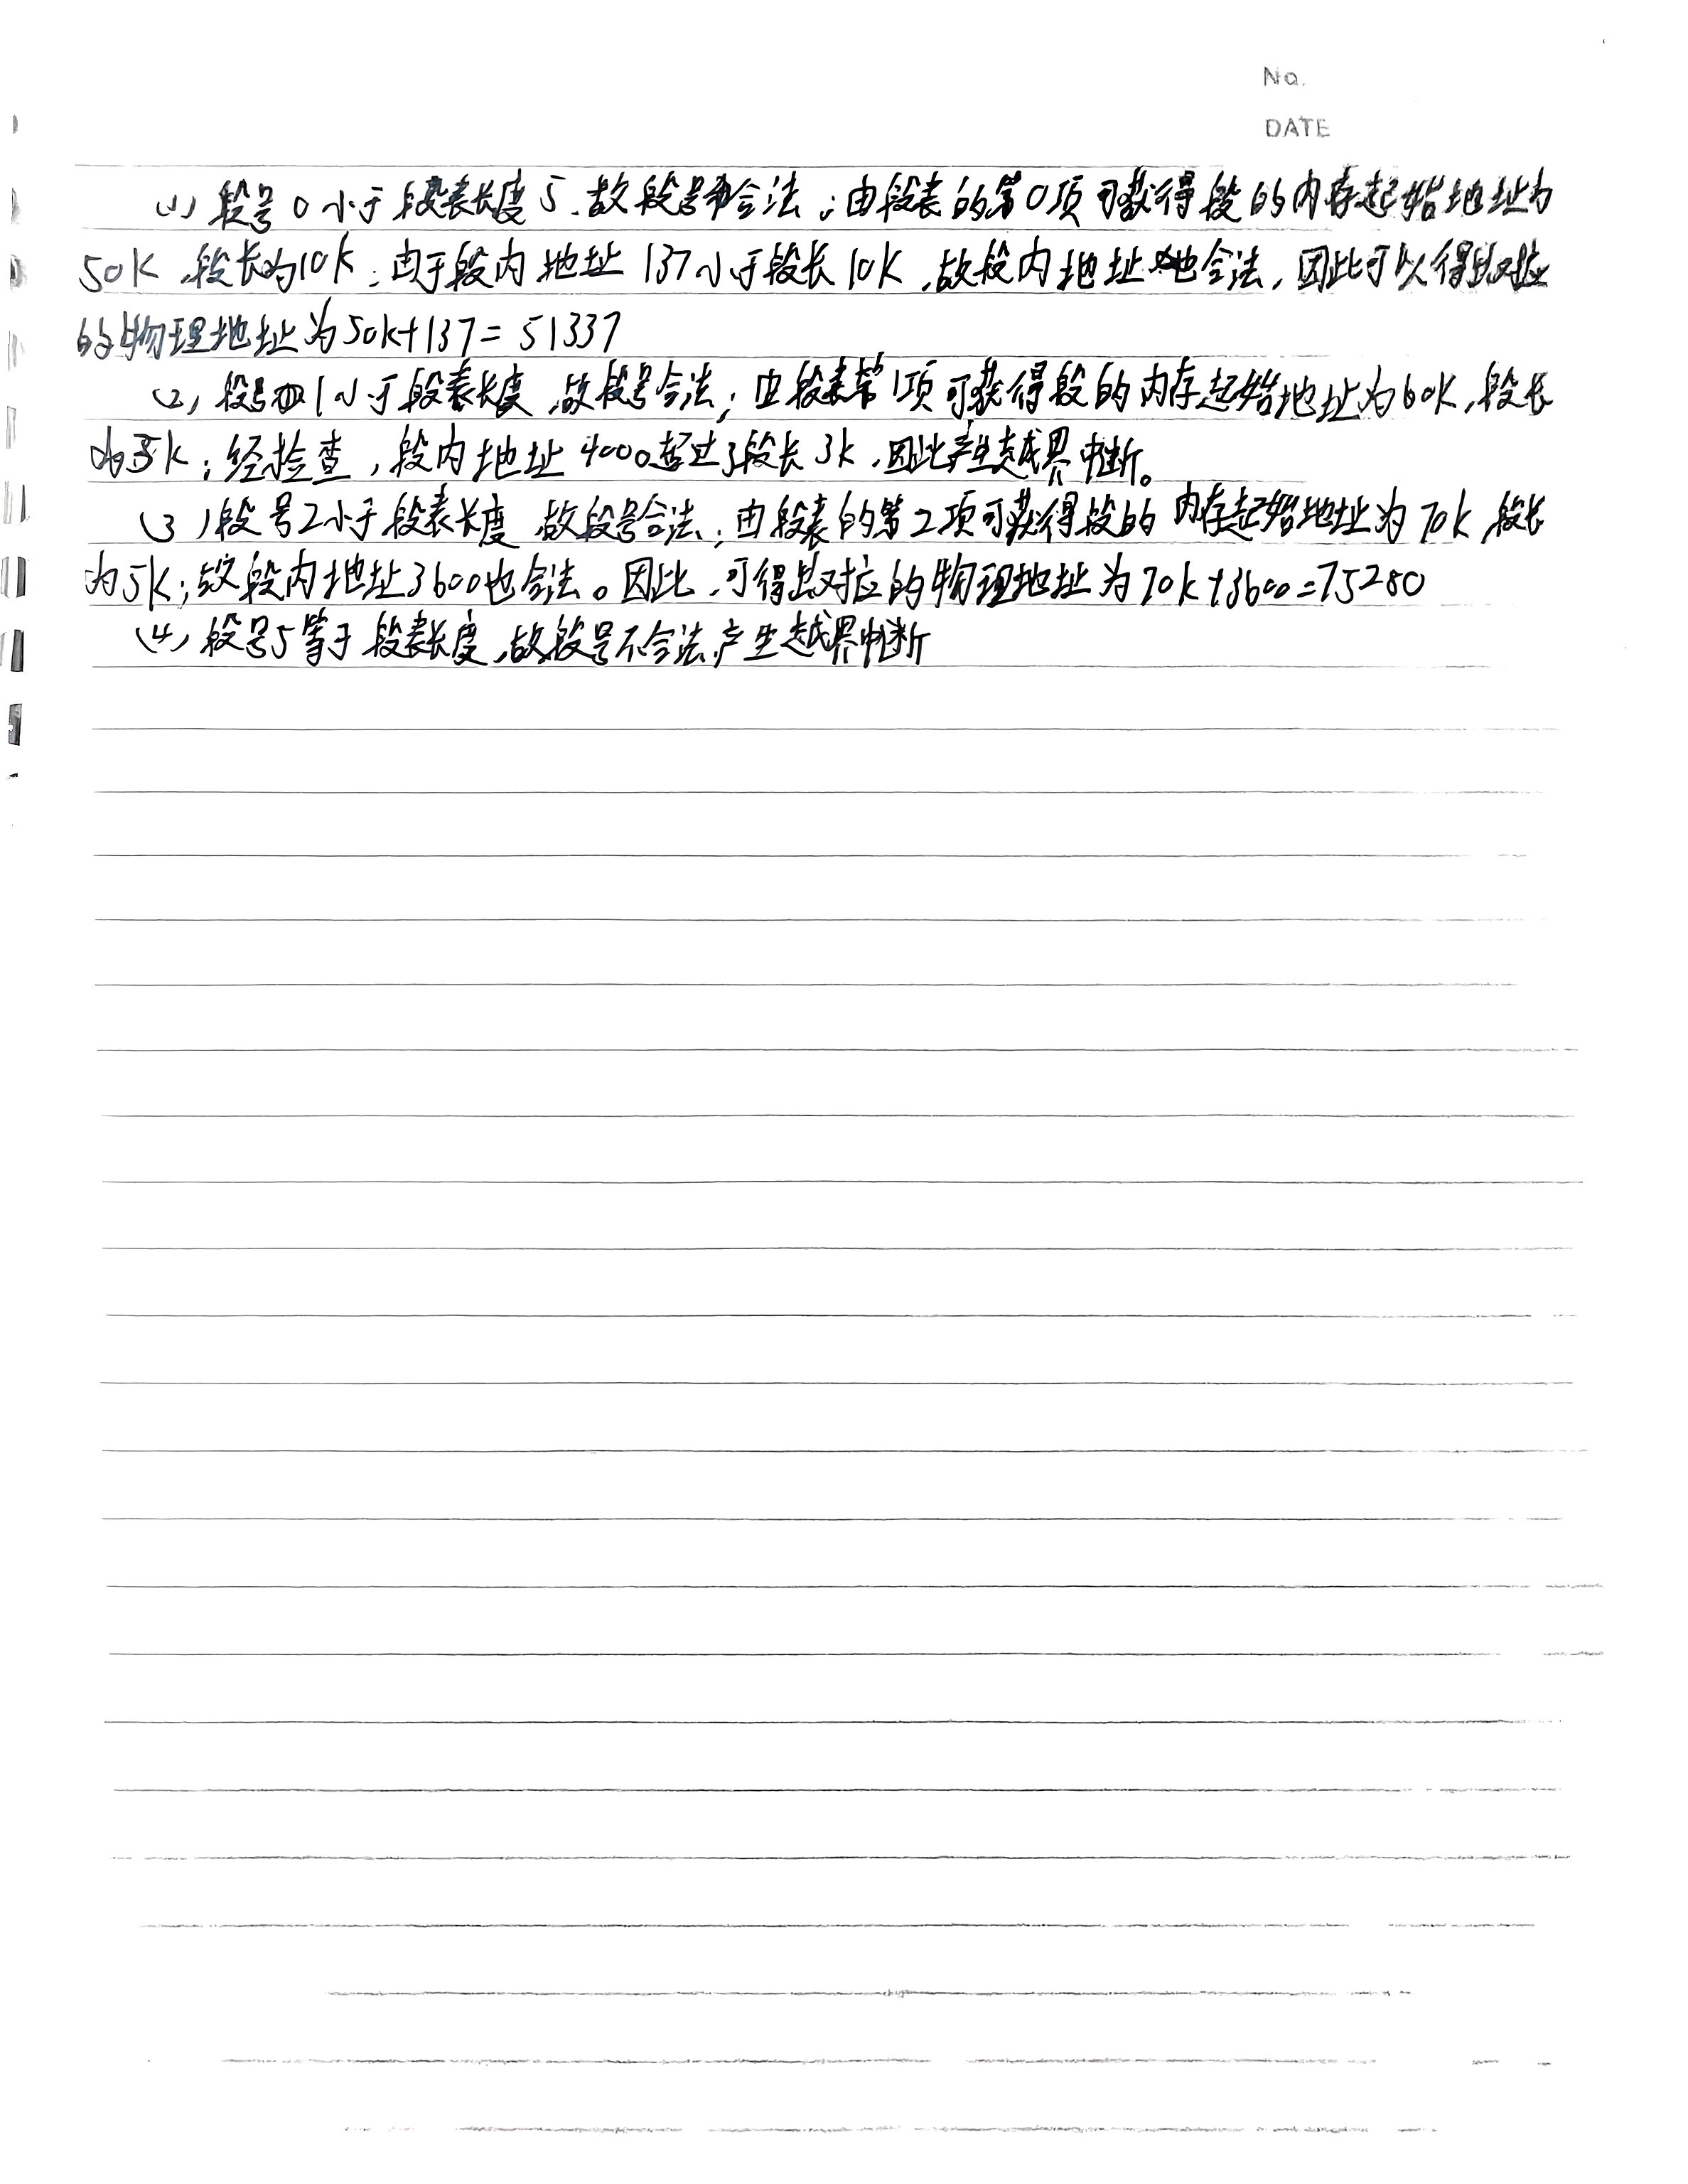 No.
DATE
(1) 段号0小于段表长度5,故段号合法;由段表的第0项可获得段的内存起始地址为
50K,段长为10K;由于段内地址137小于段长10K,故段内地址也合法,因此可以得出对应
的物理地址为50K+137=51337
(2) 段号1小于段表长度,故段号合法;由段表第1项可获得段的内存起始地址为60K,段长
为3K;经检查,段内地址4000超过了段长3K,因此产生越界中断。
(3) 段号2小于段表长度,故段号合法;由段表的第2项可获得段的内存起始地址为70K,段长
为5K;故段内地址3600也合法。因此,可得出对应的物理地址为70K+3600=75280
(4) 段号5等于段表长度,故段号不合法,产生越界中断